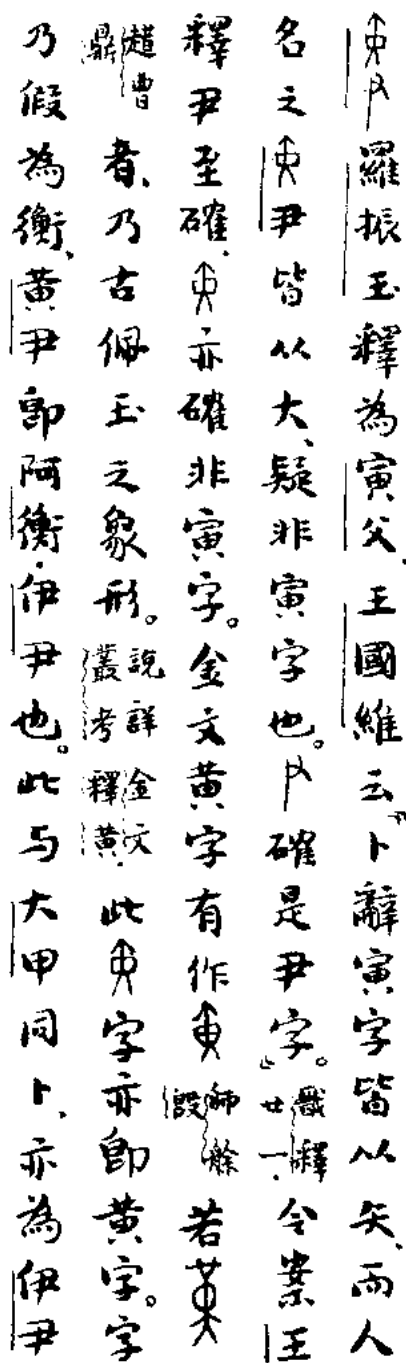 羅振玉釋為寅父、王國維云、『卜辭寅字皆从矢、而人
名之尹皆从大、疑非寅字也。確是尹字』。戩釋廿一、今案王
釋尹至確、亦確非寅字。金文黃字有作師艅𣪘若
趙曹鼎者、乃古佩玉之象形。說詳金文叢考釋黃、此字亦即黃字。字
乃假為衡、黃尹即阿衡、伊尹也。此与大甲同卜、亦為伊尹